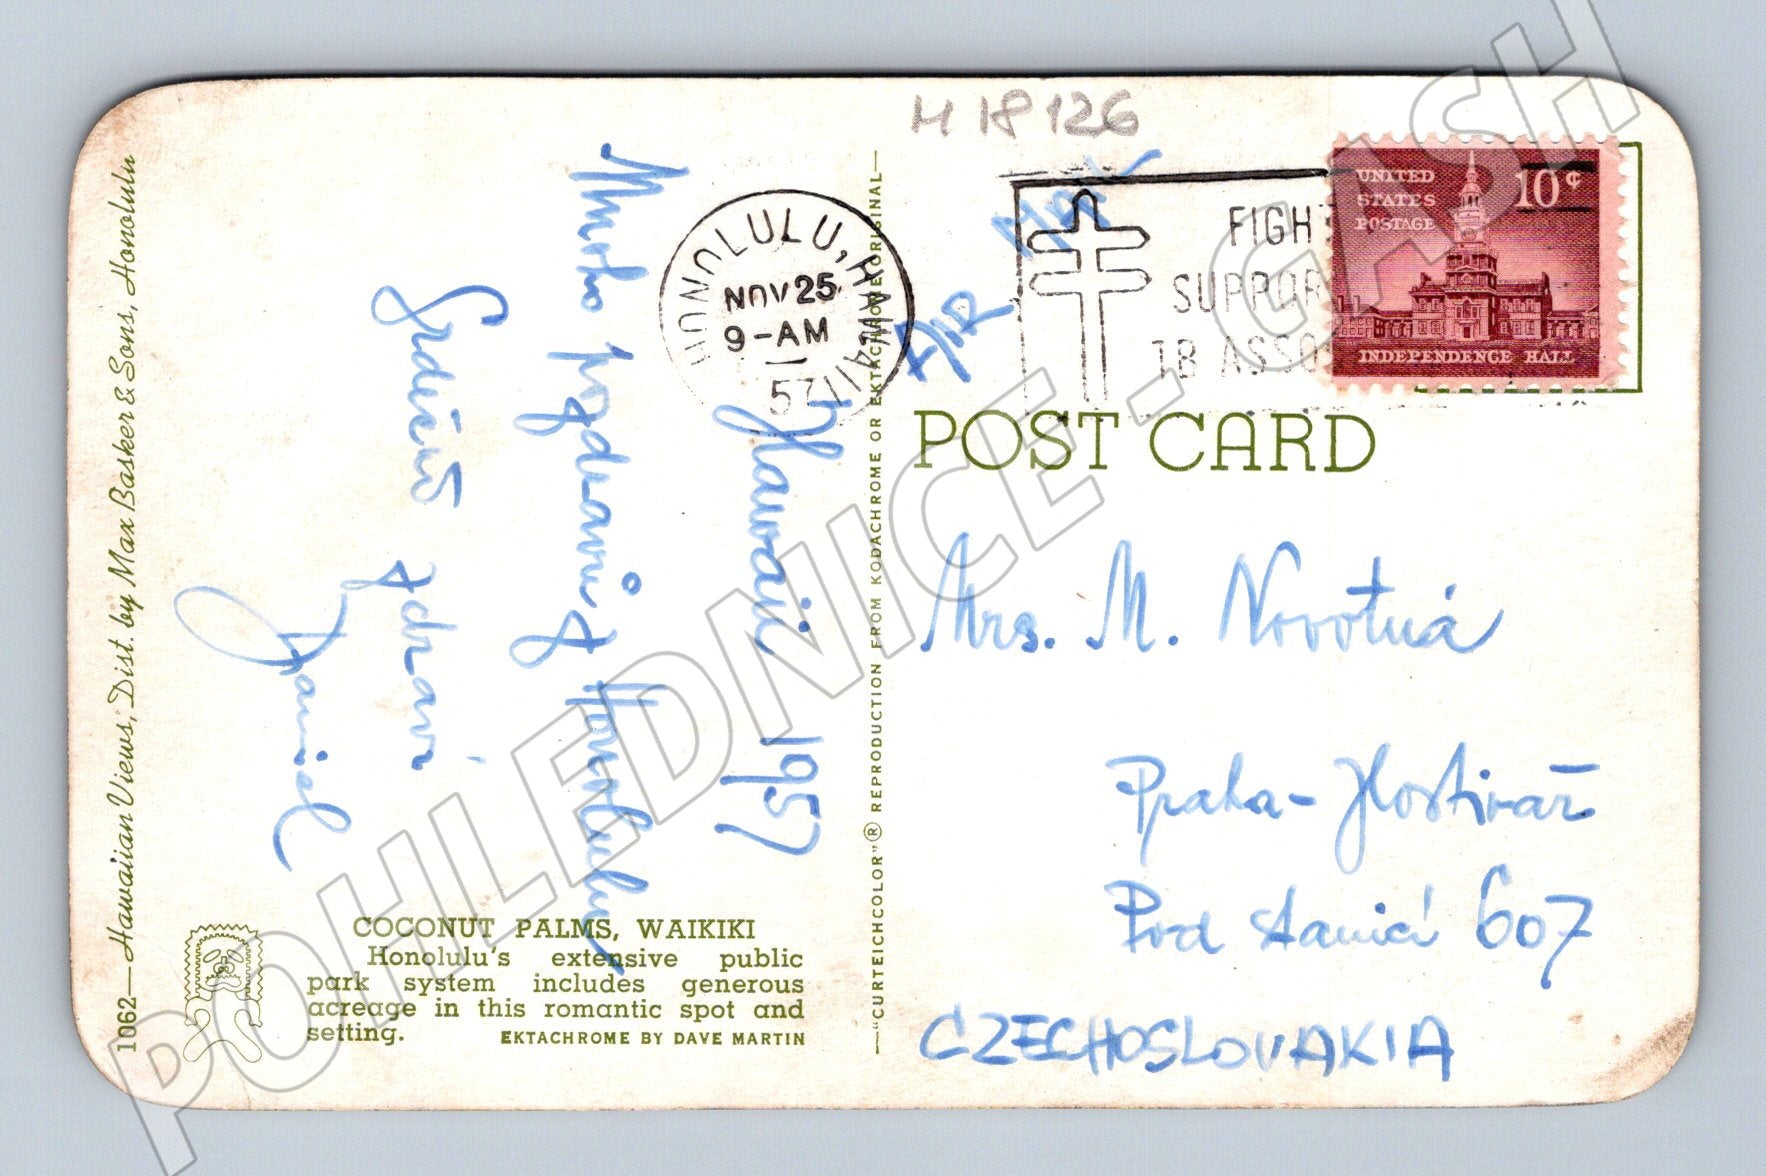 1062—Hawaiian Views, Dist. by Max Basker & Sons, Honolulu
Hawaii 1957
Mnoho pozdravů z Honolulu
Srdečně zdraví
Daniel
COCONUT PALMS, WAIKIKI
Honolulu's extensive public
park system includes generous
acreage in this romantic spot and
setting. EKTACHROME BY DAVE MARTIN
—"CURTEICHCOLOR"® REPRODUCTION FROM KODACHROME OR EKTACHROME ORIGINAL—
HONOLULU, HAWAII
NOV 25
9-AM
57
H 18126
AIR
FIGHT
SUPPOR
TB ASSO
UNITED
STATES
POSTAGE
10¢
INDEPENDENCE HALL
POST CARD
Mrs. M. Novotná
Praha-Hostivař
Pod stanicí 607
CZECHOSLOVAKIA
POHLEDNICE - GASH